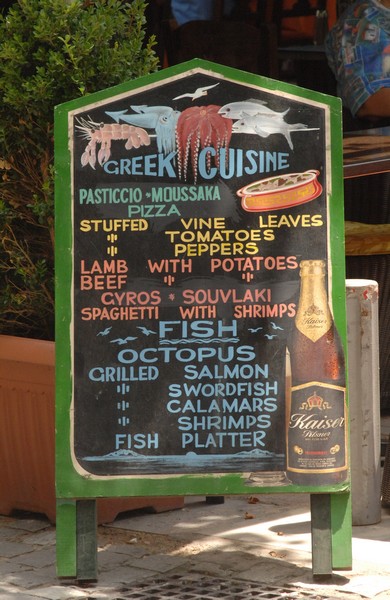 GREEK CUISINE
PASTICCIO - MOUSSAKA
PIZZA
STUFFED VINE LEAVES
" TOMATOES
" PEPPERS
LAMB WITH POTATOES
BEEF " "
GYROS - SOUVLAKI
SPAGHETTI WITH SHRIMPS
FISH
OCTOPUS
GRILLED SALMON
" SWORDFISH
" CALAMARS
" SHRIMPS
FISH PLATTER
Kaiser
Kaiser
Pilsner